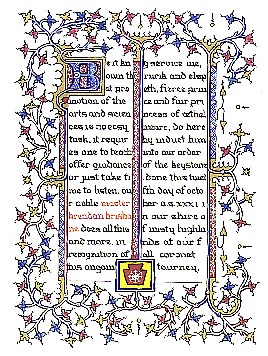 Be it kn g service me,
own th runk and elep
at pro eth, fierce prin
motion of the ce and fur pri
arts and scien cess of ethel
ces is necess mearc, do here
task, it requir by induct him
es one to teach into our order
offer guidance of the keystone
or just take ti done this twelf
me to listen, our fth day of octo
r noble master ber a.s.xxxiii
brendan brisba in our shire o
ne does all this f misty highla
and more. in nds at our f
recognition of all coronet
his ongoin tourney.